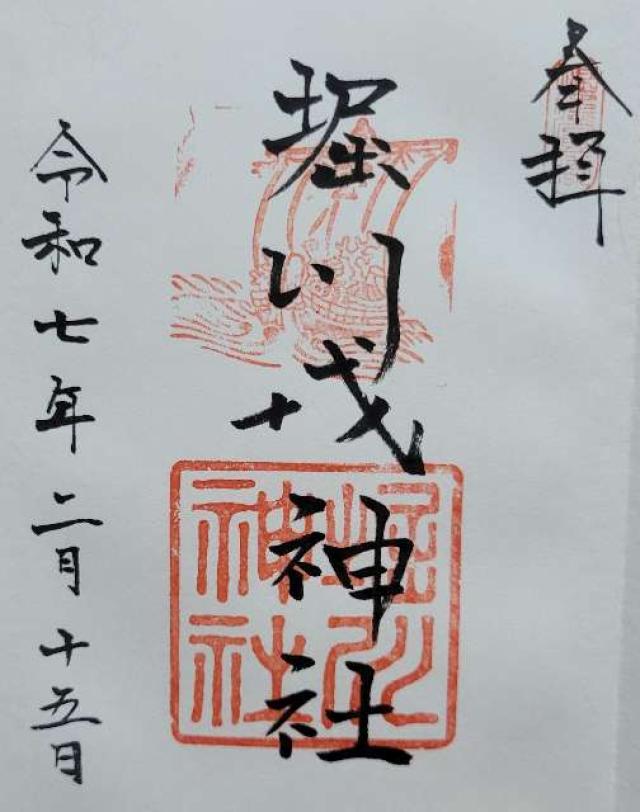 奉拝
堀川戎神社
令和七年二月十五日
堀川
神社